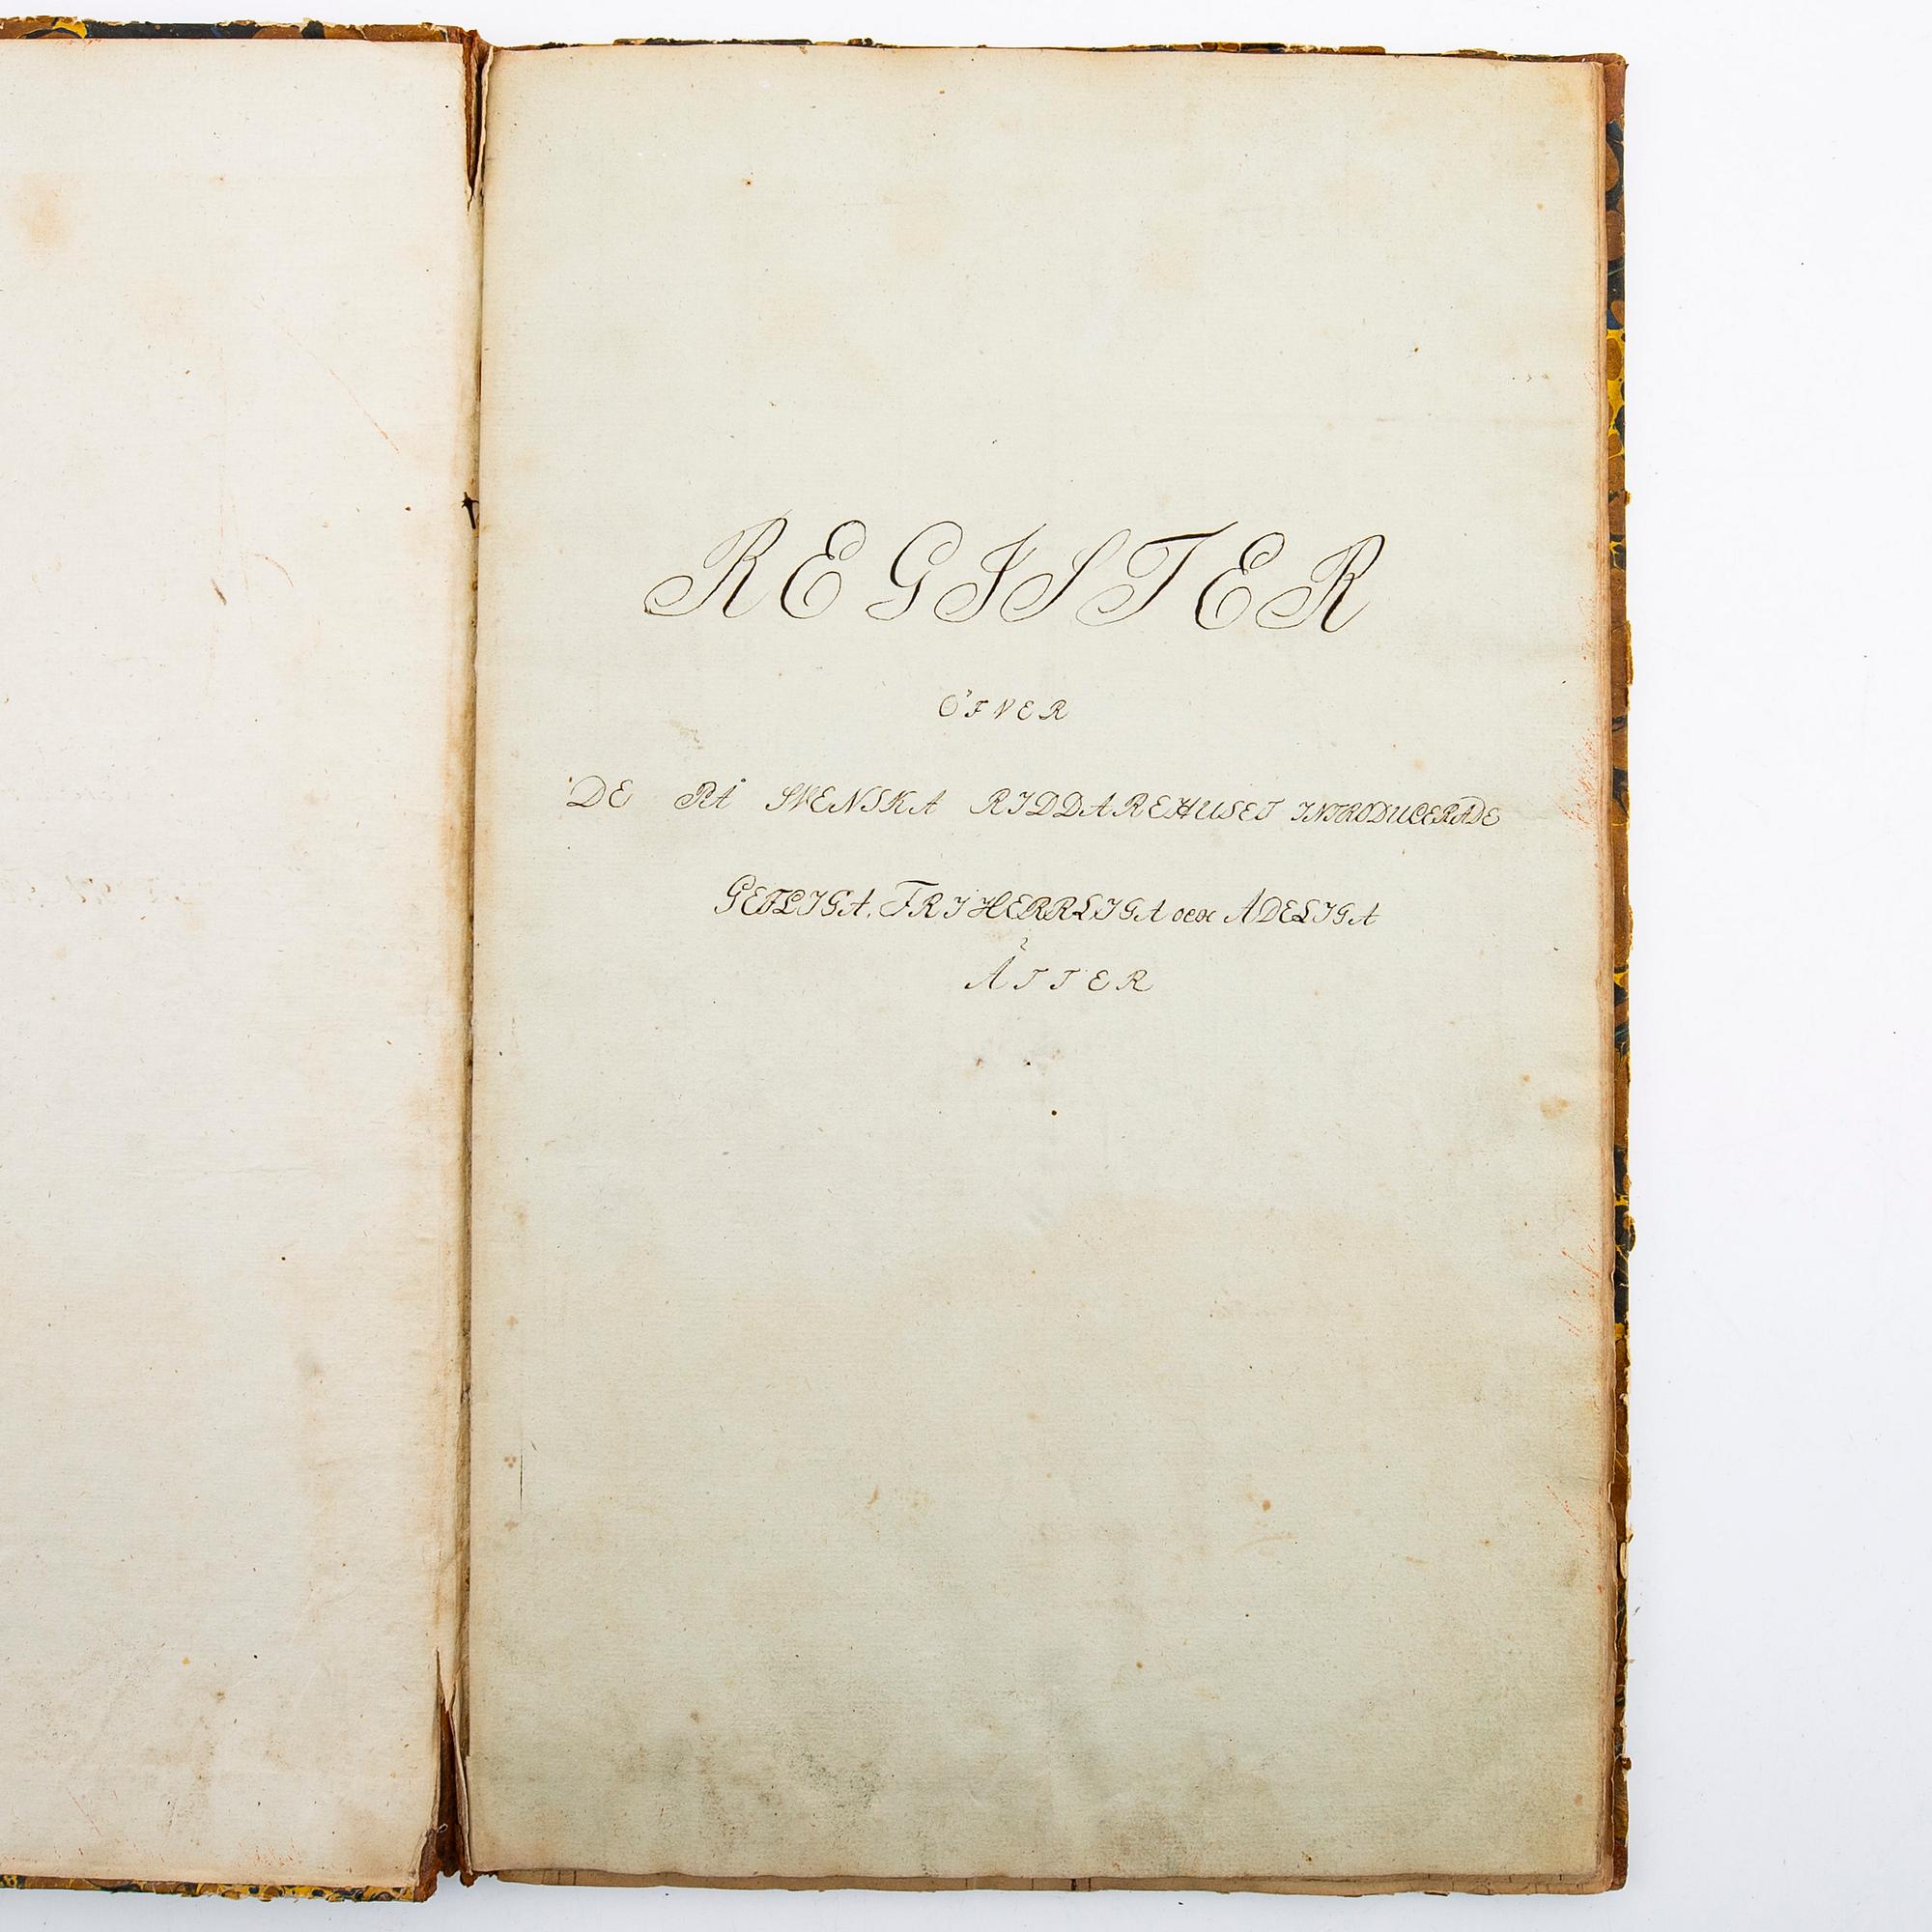 REGISTER
ÖFVER
DE PÅ SVENSKA RIDDAREHUSET INTRODUCERADE
GREFLIGA, FRIHERRLIGA OCH ADELIGA
ÄTTER